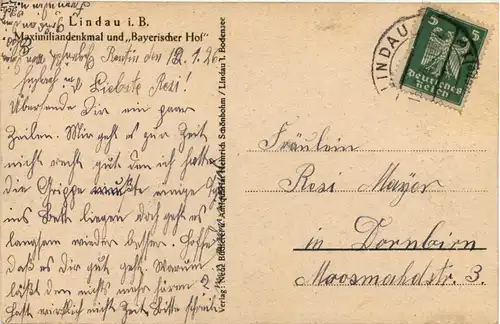 Lindau i. B.
Maximiliandenkmal und „Bayerischer Hof"
Reutin 12.1.26
Liebste Resi!
Übersende Dir ein paar
Zeilen. Mir geht es zur Zeit
nicht recht gut den ich hatte
die Grippe mußte einige
ins Bett liegen doch geht es
langsam wieder besser. Hoffe
daß es dir gut geht. Warum
läßt den nichts mehr hören?
Hast wirklich nicht Zeit bitte schreib
Verlag: Kgl. Heinrich Schönbohm / Lindau i. Bodensee
LINDAU
5 5
Deutsches
Reich
Fräulein
Resi Mayer
in Dornbirn
Moosmahdstr. 3.